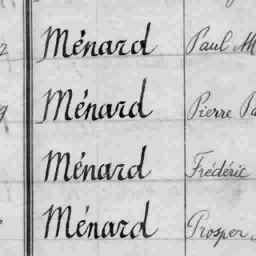 Ménard Paul M
Ménard Pierre Pa
Ménard Frédéric
Ménard Prosper